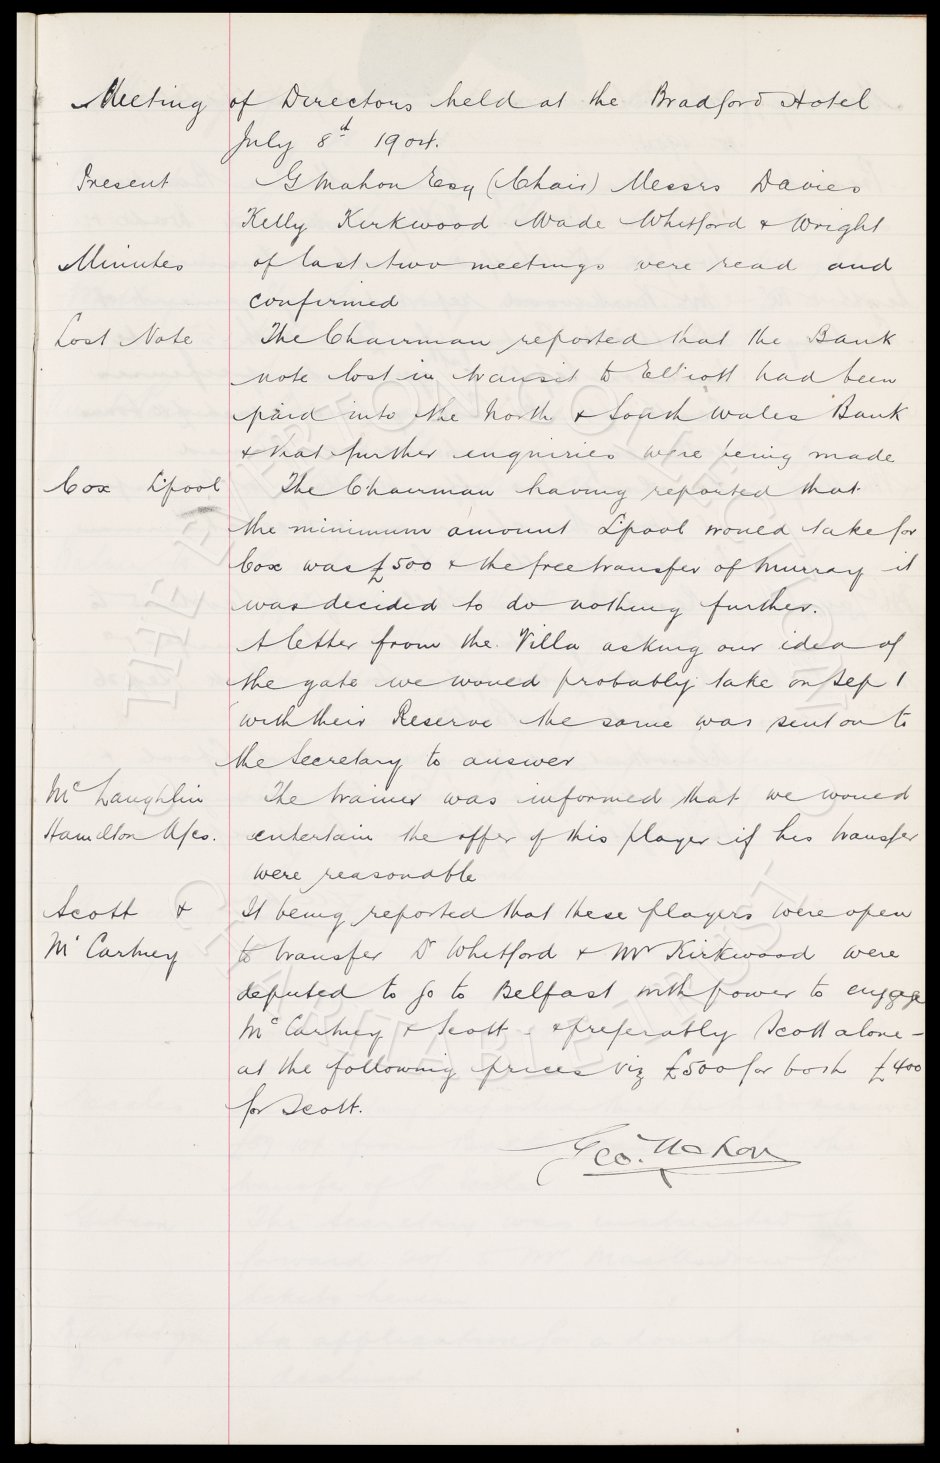 Meeting of Directors held at the Bradford Hotel
July 8th 1904.
Present G Mahon Esq (Chair) Messrs Davies
Kelly Kirkwood Wade Whitford & Wright
Minutes of last two meetings were read and
confirmed
Lost Note The Chairman reported that the Bank
note lost in transit to Elliott had been
paid into the North & South Wales Bank
& that further enquiries were being made
Cox L'pool The Chairman having reported that
the minimum amount L'pool would take for
Cox was £500 & the free transfer of Murray it
was decided to do nothing further.
A letter from the Villa asking our idea of
the gate we would probably take on Sep 1
with their Reserve the same was sent on to
the Secretary to answer
McLaughlin The trainer was informed that we would
Hamilton Afcs. entertain the offer of this player if his transfer
were reasonable
Scott & It being reported that these players were open
McCartney to transfer Dr Whitford & Mr Kirkwood were
deputed to go to Belfast with power to engage
McCartney & Scott - & preferably Scott alone -
at the following prices viz £500 for both £400
for Scott.
Geo. Mahon